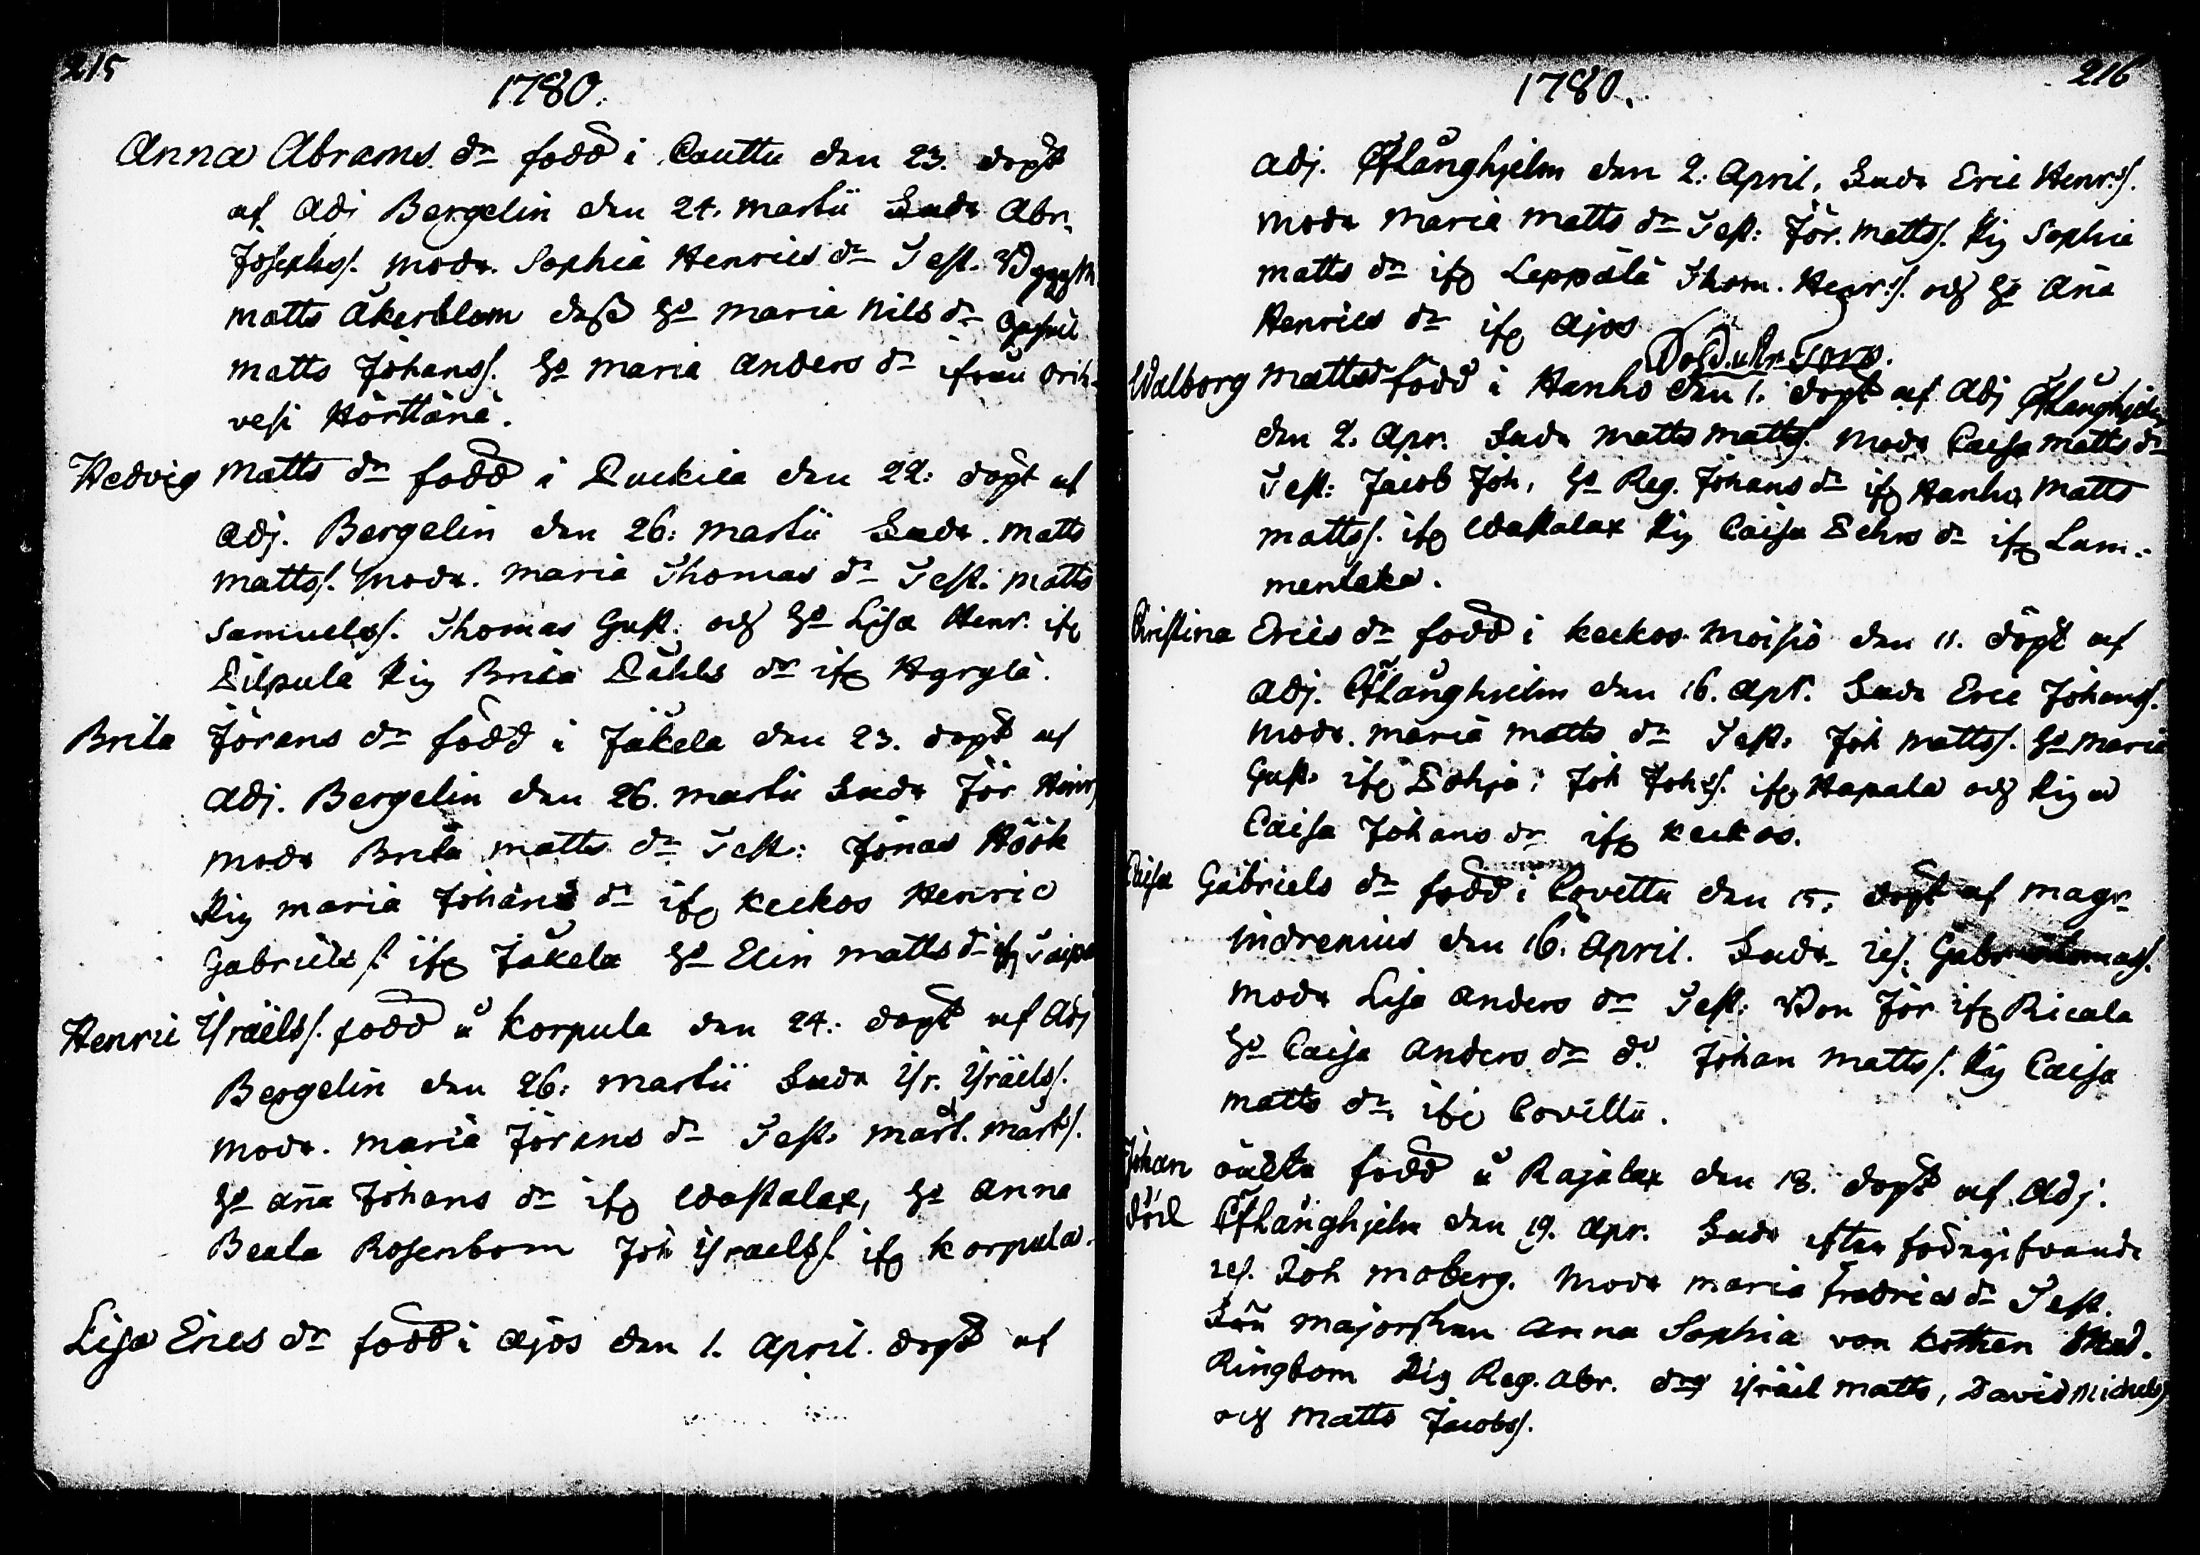 215
1780.
Anna Abrams dr född i Cauttu den 23. döpt
af Adj Bergelin den 24. Martii Fadr Abr.
Josephss. Modr. Sophia Henrics dr Test.
Matts Åkerblom dess Ho Maria Nils dr
Matts Johanss. Ho Maria Anders dr ifrån Orih-
vesi Hörttänä.
Hedvig Matts dr född i Puckila den 22: döpt af
Adj. Bergelin den 26: Martii Fadr. Matts
Mattss. Modr. Maria Thomas dr Test. Matts
Samuelss. Thomas Gust. och Ho Lisa Henr. ifr
Pilpula Pig Brita Påhls dr ifr Hyrylä.
Brita Jörans dr född i Jäkelä den 23. döpt af
Adj. Bergelin den 26. Martii Fadr Jör Henrs
Modr Brita Matts dr Test: Jonas Höök
Pig Maria Johans dr ifr Keckos Henric
Gabriels s. ifr Jäkelä Ho Elin Matts dr ifr
Henric Israelss. född å Korpula den 24: döpt af Adj
Bergelin den 26: Martii Fadr Isr. Israelss.
Modr. Maria Jörans dr Test. Mårt. Mårtss.
Ho Aña Johans dr ifr Waskalax, Ho Anna
Beata Rosenbom Joh Israelss. ifr Korpula.
Lisa Erics dr född i Ajos den 1. April. döpt af
216
1780.
Adj. Öfflånghjelm den 2. April, Fadr Eric Henr.s.
Modr Maria Matts dr Test: Jör. Mattss. Pig Sophia
Matts dr ifr Leppälä Thom. Henr.s. och Ho Aña
Henrics dr ifr Ajos
Walborg Matts dr född i Hanho den 1. döpt af Adj Öfflånghjelm
den 2. Apr. Fadr Matts Mattss. Modr Caisa Matts dr
Test: Jacob Joh. Ho Reg. Johans dr ifr Hanho, Matts
Mattss. ifr Waskalax Pig Caisa Pehrs dr ifr Lam-
mentaka.
Christina Erics dr född i Keckos Moisio den 11. döpt af
Adj. Öfflånghielm den 16. Apr. Fadr Eric Johanss.
Modr. Maria Matts dr Test. Joh Mattss. Ho Maria
Gust. ifr Pohja, Joh Joh.s. ifr Hapala och Piga
Caisa Johans dr ifr Keckos.
Caisa Gabriels dr född i Covettu den 15. döpt af Magr
Indrenius den 16. April. Fadr. res. Gabr Thomass.
Modr Lisa Anders dr Test: Bon Jör ifr Ricala
Ho Caisa Anders dr do. Johan Mattss. Pig Caisa
Matts dr, ifr Covettu.
Johan oäkta född å Rajalax den 18. döpt af Adj.
Joel Öfflånghjelm den 19. Apr. Fadr efter födregifvande
res. Joh Moberg. Modr Maria Fredrics dr Test.
Fru Majorskan Anna Sophia von Kothen Mad.
Ringbom Pig Reg. Abr. drg Israel Matts, David Michelss
och Matts Jacobss.